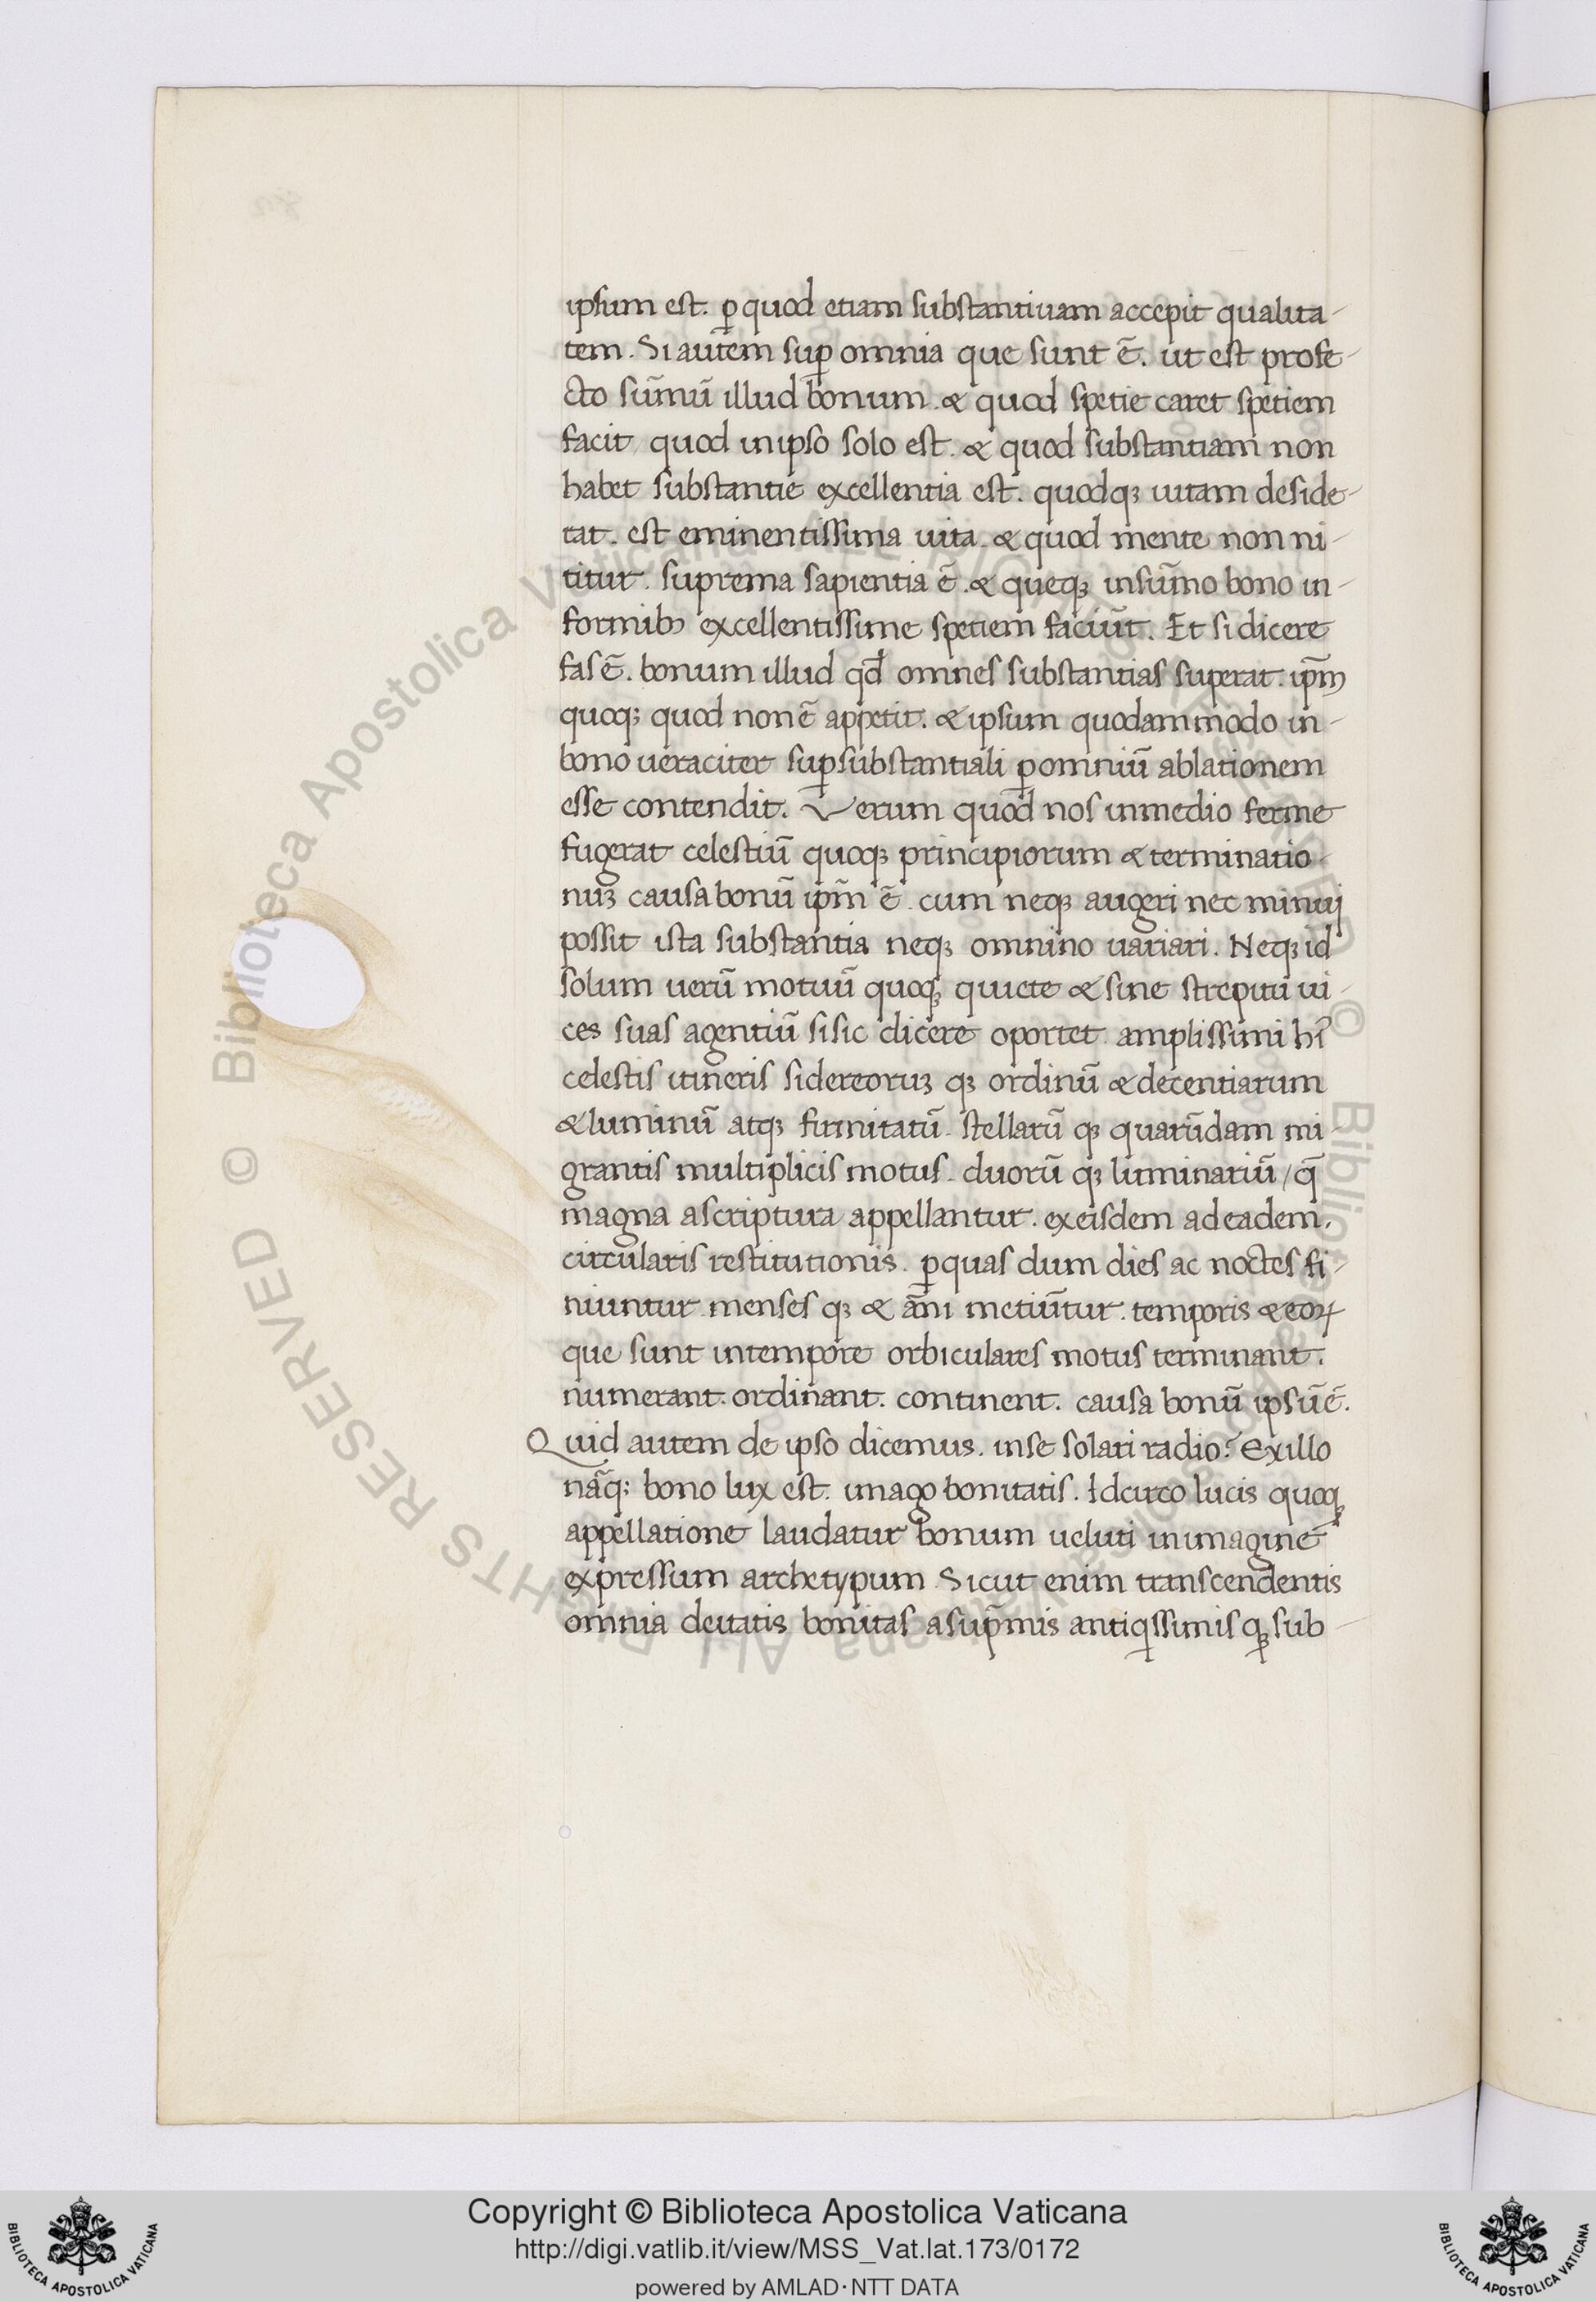 ipsum est. ꝑ quod etiam substantiuam accepit qualita-
tem. Si aut̄em suꝑ omnia que sunt ē. ut est profe-
cto sūmū illud bonum. & quod spetie caret spetiem
facit quod inipso solo est. & quod substantiam non
habet substantie excellentia est. quodqꝫ uitam deside-
rat. est eminentissima uita. & quod mente non ni-
titur. suprema sapientia ē. & queqꝫ insūmo bono in-
formibꝫ excellentissime spetiem faciūt. Et si dicere
fas ē. bonum illud qd̄ omnes substantias superat. ip̄m
quoqꝫ quod non ē appetit. & ipsum quodammodo in-
bono ueraciter suꝑsubstantiali ꝑ omniū ablationem
esse contendit. Verum quod nos inmedio ferme
fugerat celestiū quoqꝫ principiorum & terminatio-
nuꝫ causa bonū ip̄m ē. cum neqꝫ augeri nec minuj
possit ista substantia neqꝫ omnino uariari. Neqꝫ id
solum uerū motuū quoqꝫ quiete & sine strepitu ui-
ces suas agentiū si sic dicere oportet amplissimi hī
celestis itineris sidereoruꝫ qꝫ ordinū & decentiarum
& luminū atqꝫ firmitatū. stellarū qꝫ quarūdam mi-
grantis multiplicis motus. duorū qꝫ luminariū / q̄
magna ascriptura appellantur. exeisdem ad eadem,
circularis restitutionis. ꝑ quas dum dies ac noctes fi-
niuntur menses qꝫ & ān̄i metiūtur. temporis & eoꝝ
que sunt intempore orbiculares motus terminant.
numerant. ordinant. continent. causa bonū ipsū ē.
Quid autem de ipso dicemus. inse solari radio? Exillo
nāqꝫ bono lux est. imago bonitatis. Idcirco lucis quoqꝫ
appellatione laudatur bonum ueluti inimagine
expressum archetypum. Sicut enim transcendentis
omnia deitatis bonitas asup̄mis antiqissimis qꝫ sub-
Copyright © Biblioteca Apostolica Vaticana
http://digi.vatlib.it/view/MSS_Vat.lat.173/0172
powered by AMLAD·NTT DATA
BIBLIOTECA APOSTOLICA VATICANA
BIBLIOTECA APOSTOLICA VATICANA